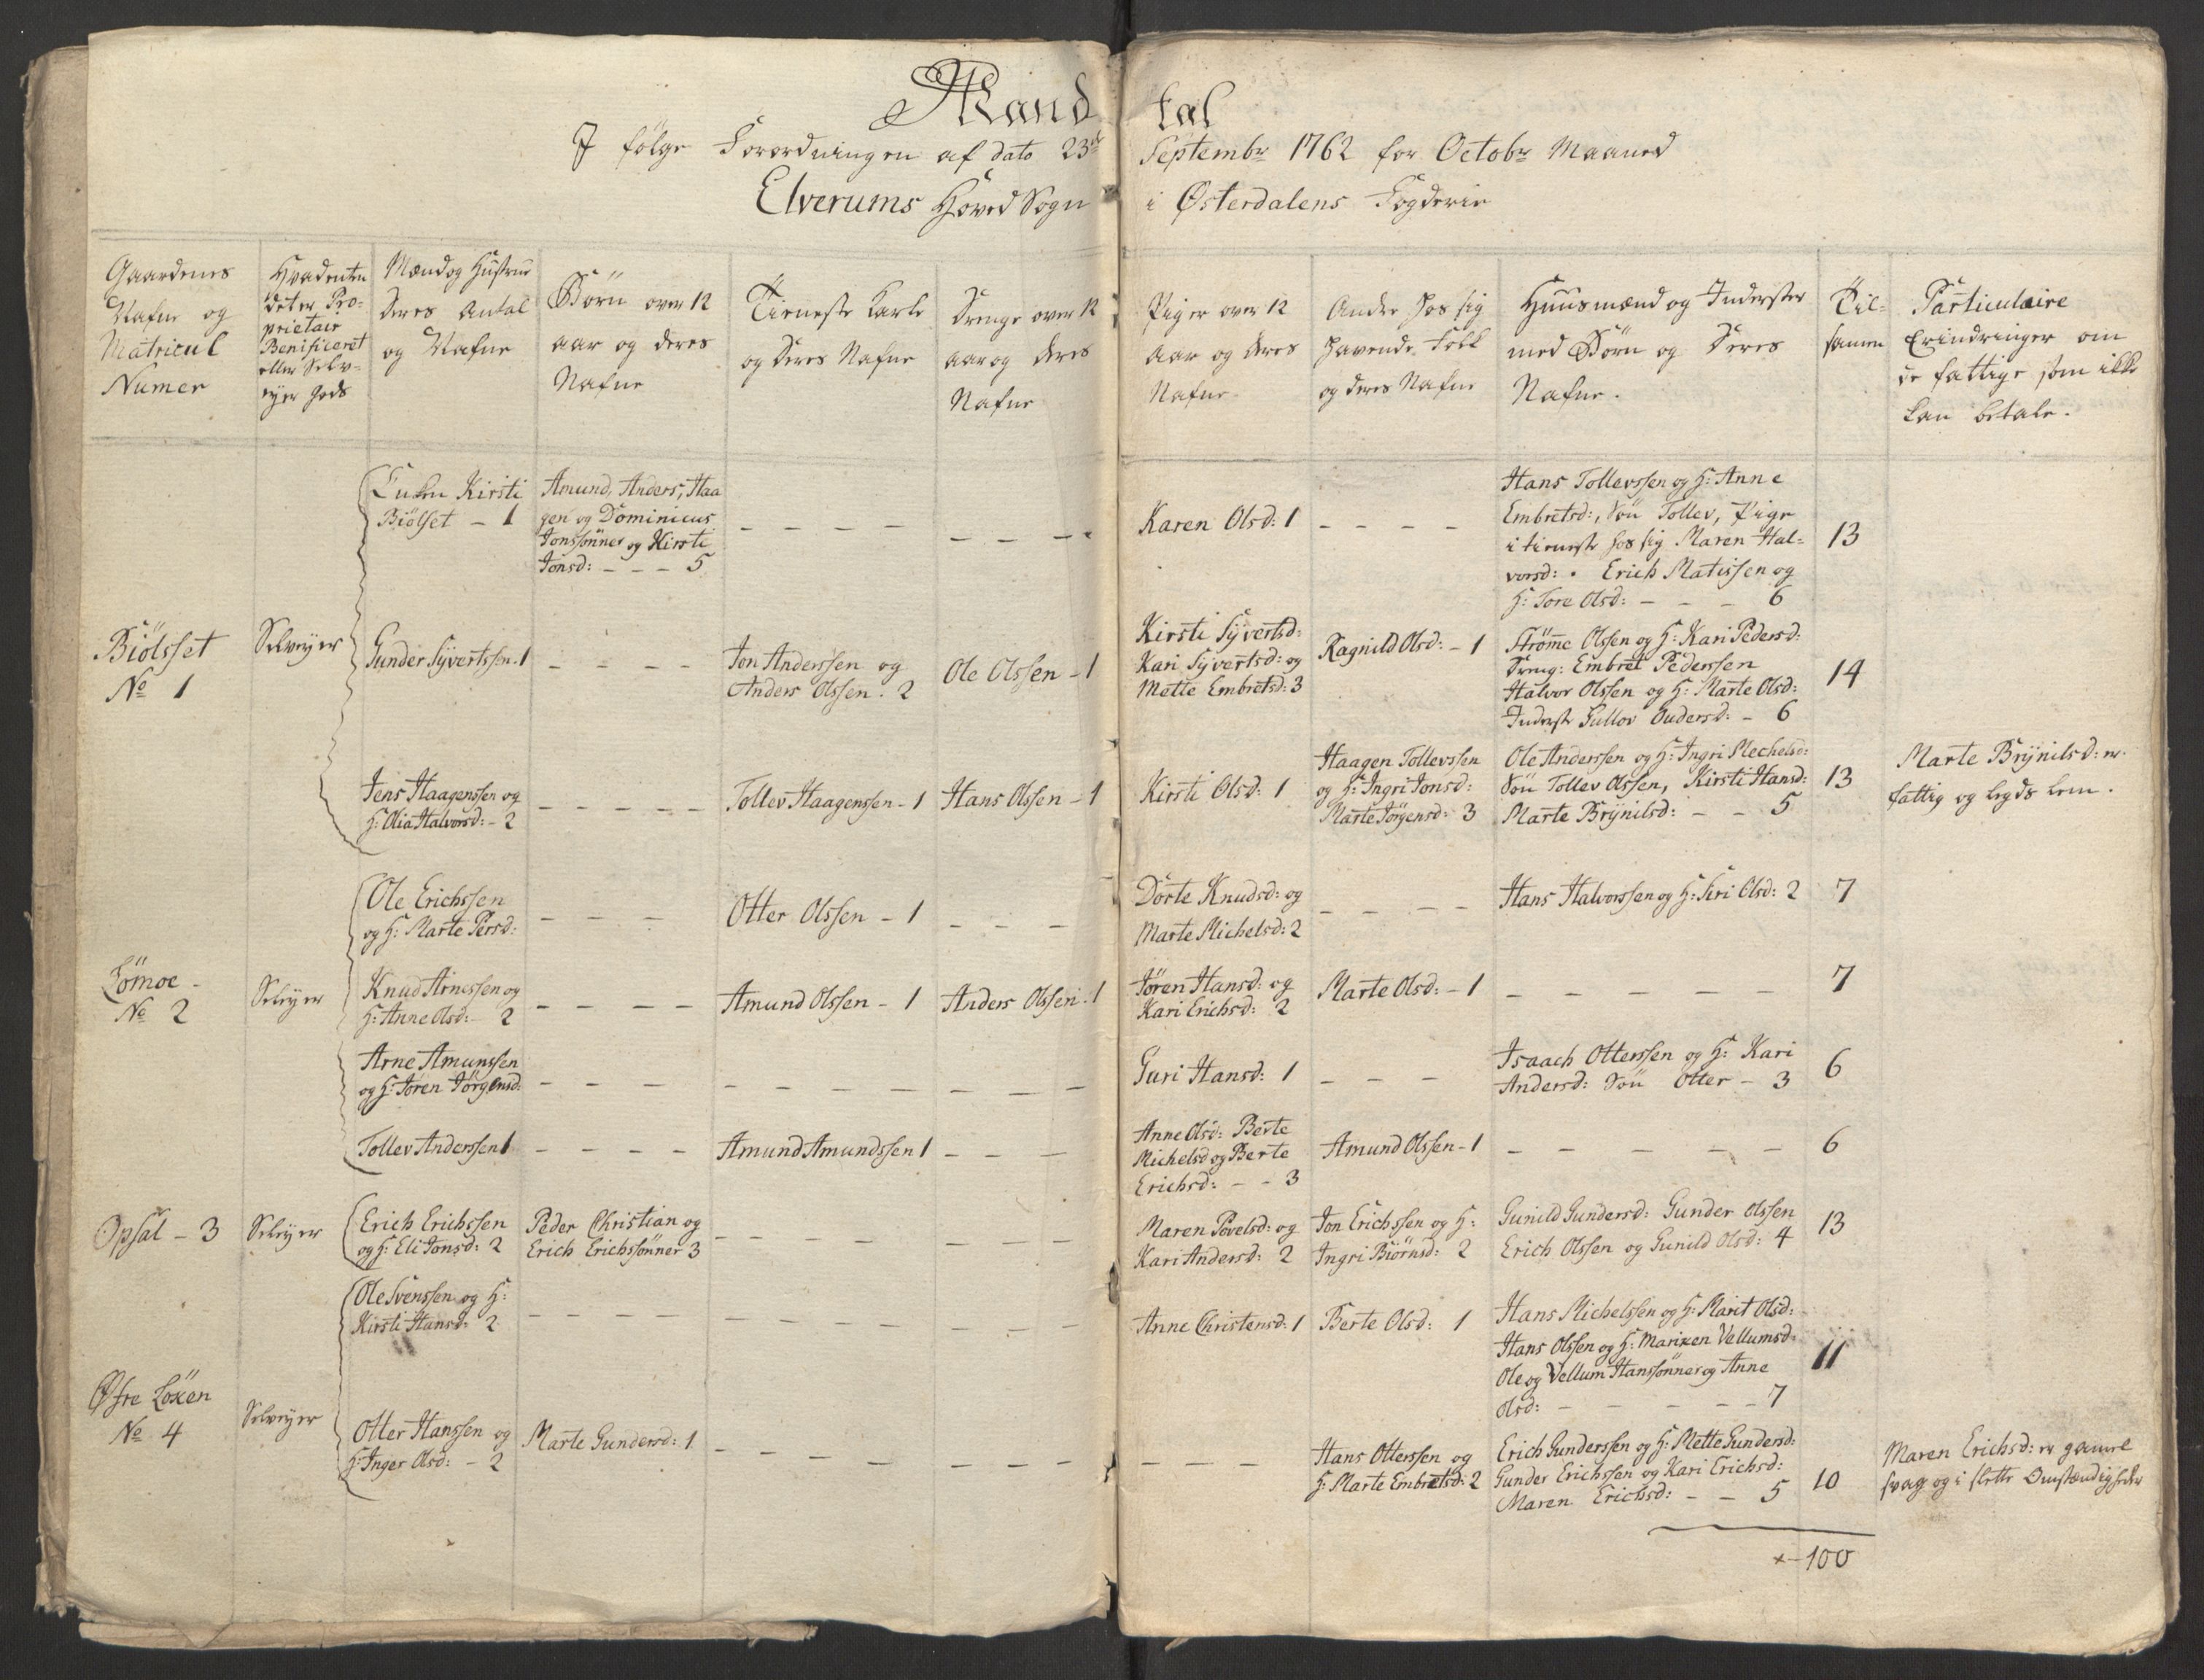 Mandtal
I følge Forordningen af dato 23de Septembr 1762 for Octobr Maaned
Elverums Hoved Sogn i Østerdalens Fogderie
Gaardenes
Nafne og
Matricul
Numer
Hvad enten
det er Pro-
prietair
Benificeret
eller Selv-
eyer Gods
Mænd og Hustrue
deres Antal
og Nafne
Børn over 12
aar og deres
Nafne
Tieneste Karle
og deres Nafne
Drenge over 12
aar og deres
Nafne
Piger over 12
aar og deres
Nafne
Andre hos sig
havende Folk
og deres Nafne
Huusmænd og Inderster
med Børn og Deres
Nafne.
Til-
samen
Particulaire
Erindringer om
de fattige som ikke
kan betale.
Biølsset
No 1
Selveyer
Enken Kirsti
Biølset - 1
Amund, Anders, Haa
gen og Dominicus
Jonssønner og Kirsti
Jonsd: - - - 5
- - - -
- - -
Karen Olsd: 1
- - - -
Hans Tollevssen og H: Anne
Embretsd:, Søn Tollev, Pige
i tieneste hos sig Maren Hal=
vorsd: . Erich Matissen og
H: Tore Olsd: - - - 6
13
Gunder Syvertssen - 1
- - - -
Jon Anderssen og
Anders Olssen. 2
Ole Olssen - 1
Kirsti Syvertsd:
Kari Syvertsd: og
Mette Embretsd: 3
Ragnild Olsd: - 1
Strømme Olssen og H: Kari Pedersd:
Dreng: Embret Pederssen
Halvor Olssen og H: Marte Olsd:
Inderste Gullov Oudersd: - 6
14
Jens Haagenssen og
H: Olia Halvorsd: - 2
- - - - -
Tollev Haagenssen - 1
Hans Olssen - 1
Kirsti Olsd: 1
Haagen Tollevssen
og H: Ingri Jonsd:
Marte Jørgensd: 3
Ole Anderssen og H: Ingri Mechelsd:
Søn Tollev Olssen, Kirsti Hansd:
Marte Brynilsd: - - 5
13
Marte Brynilsd: er
fattig og legds lem.
Ole Erichssen
og H: Marte Persd:
- - -
Otter Olssen - 1
- - -
Dorte Knudsd: og
Marte Michelsd: 2
- - - -
Hans Halvorssen og H: Siri Olsd: 2
7
Lømoe
No 2
Selveyer
Knud Arnessen og
H: Anne Olsd: - 2
- - - -
Amund Olssen - 1
Anders Olssen - 1
Jøren Hansd: og
Kari Erichsd: 2
Marte Olsd: - 1
- - - - -
7
Arne Amunssen
og H: Jøren Jørgensd:
- - - -
- - - -
- - -
Guri Hansd: 1
- - -
Isaach Otterssen og H: Kari
Andersd: Søn Otter - 3
6
Tollev Anderssen 1
- - - -
Amund Amundssen 1
- - -
Anne Olsd: Berte
Michelsd og Berte
Erichsd: - - 3
Amund Olssen - 1
- - - - -
6
Opsal - 3
Selveyer
Erich Erichssen
og H: Eli Jonsd: 2
Peder Christian og
Erich Erichssønner 3
- - - -
- - -
Maren Povelsd: og
Kari Andersd: 2
Jon Erichssen og H:
Ingri Biørnsd: 2
Gunild Gundersd: Gunder Olssen
Erich Olssen og Gunild Olsd: 4
13
Ole Svenssen og H:
Kirsti Hansd: 2
- - - -
- - - -
- - -
Anne Christensd: 1
Berte Olsd: 1
Hans Michelssen og H: Marit Olsd:
Hans Olssen og H: Mariken Vellumsd:
Ole og Vellum Hanssønner og Anne
Olsd: - - - - - 7
11
Øfre Loken
No 4
Selveyer
Otter Hanssen og
H: Inger Olsd: - 2
Marte Gundersd: 1
- - - -
- - -
- - -
Hans Otterssen og
H: Marte Embretsd: 2
Erich Gunderssen og H: Mette Gundersd:
Gunder Erichssen og Kari Erichsd:
Maren Erichsd: - - 5
10
Maren Erichsd: er gamel
svag og i slette Omstændigheder
100